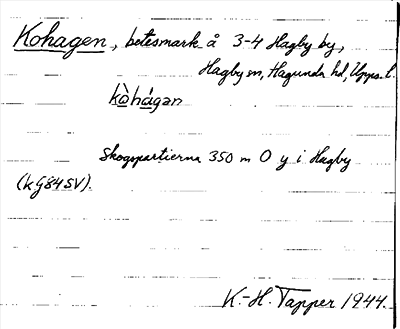 Kohagen, betesmark å 3-4 Hagby by,
Hagby sn, Hagunda hd, Upps. l.
kòhágan
Skogspartierna 350 m O y i Hagby
(kG84SV).
K.-H. Tapper 1944.